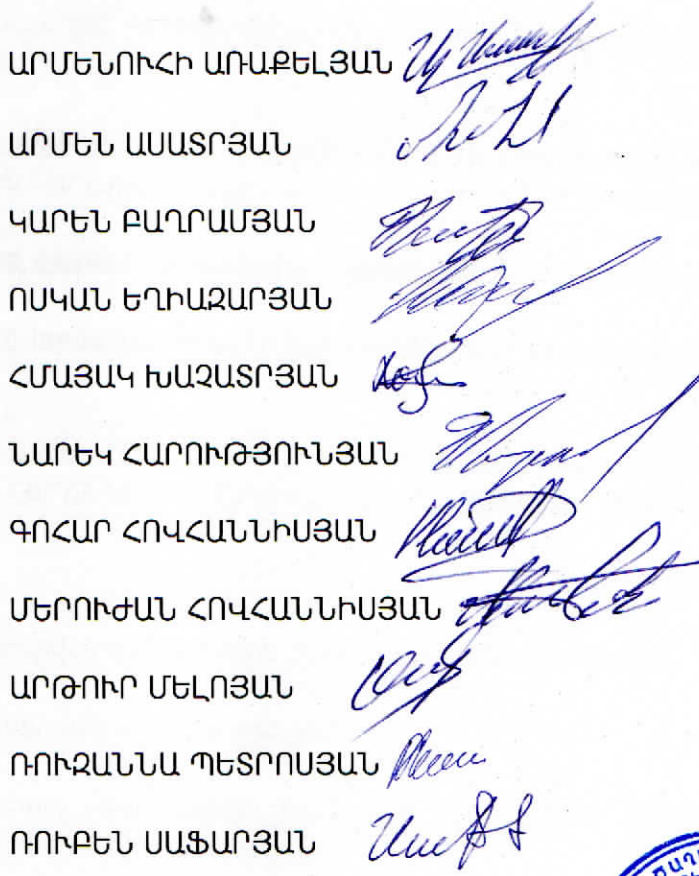 ԱՐՄԵՆՈՒՀԻ ԱՌԱՔԵԼՅԱՆ
ԱՐՄԵՆ ԱՍԱՏՐՅԱՆ
ԿԱՐԵՆ ԲԱՂՐԱՄՅԱՆ
ՈՍԿԱՆ ԵՂԻԱԶԱՐՅԱՆ
ՀՄԱՅԱԿ ԽԱՉԱՏՐՅԱՆ
ՆԱՐԵԿ ՀԱՐՈՒԹՅՈՒՆՅԱՆ
ԳՈՀԱՐ ՀՈՎՀԱՆՆԻՍՅԱՆ
ՄԵՐՈՒԺԱՆ ՀՈՎՀԱՆՆԻՍՅԱՆ
ԱՐԹՈՒՐ ՄԵԼՈՅԱՆ
ՌՈՒԶԱՆՆԱ ՊԵՏՐՈՍՅԱՆ
ՌՈՒԲԵՆ ՍԱՖԱՐՅԱՆ